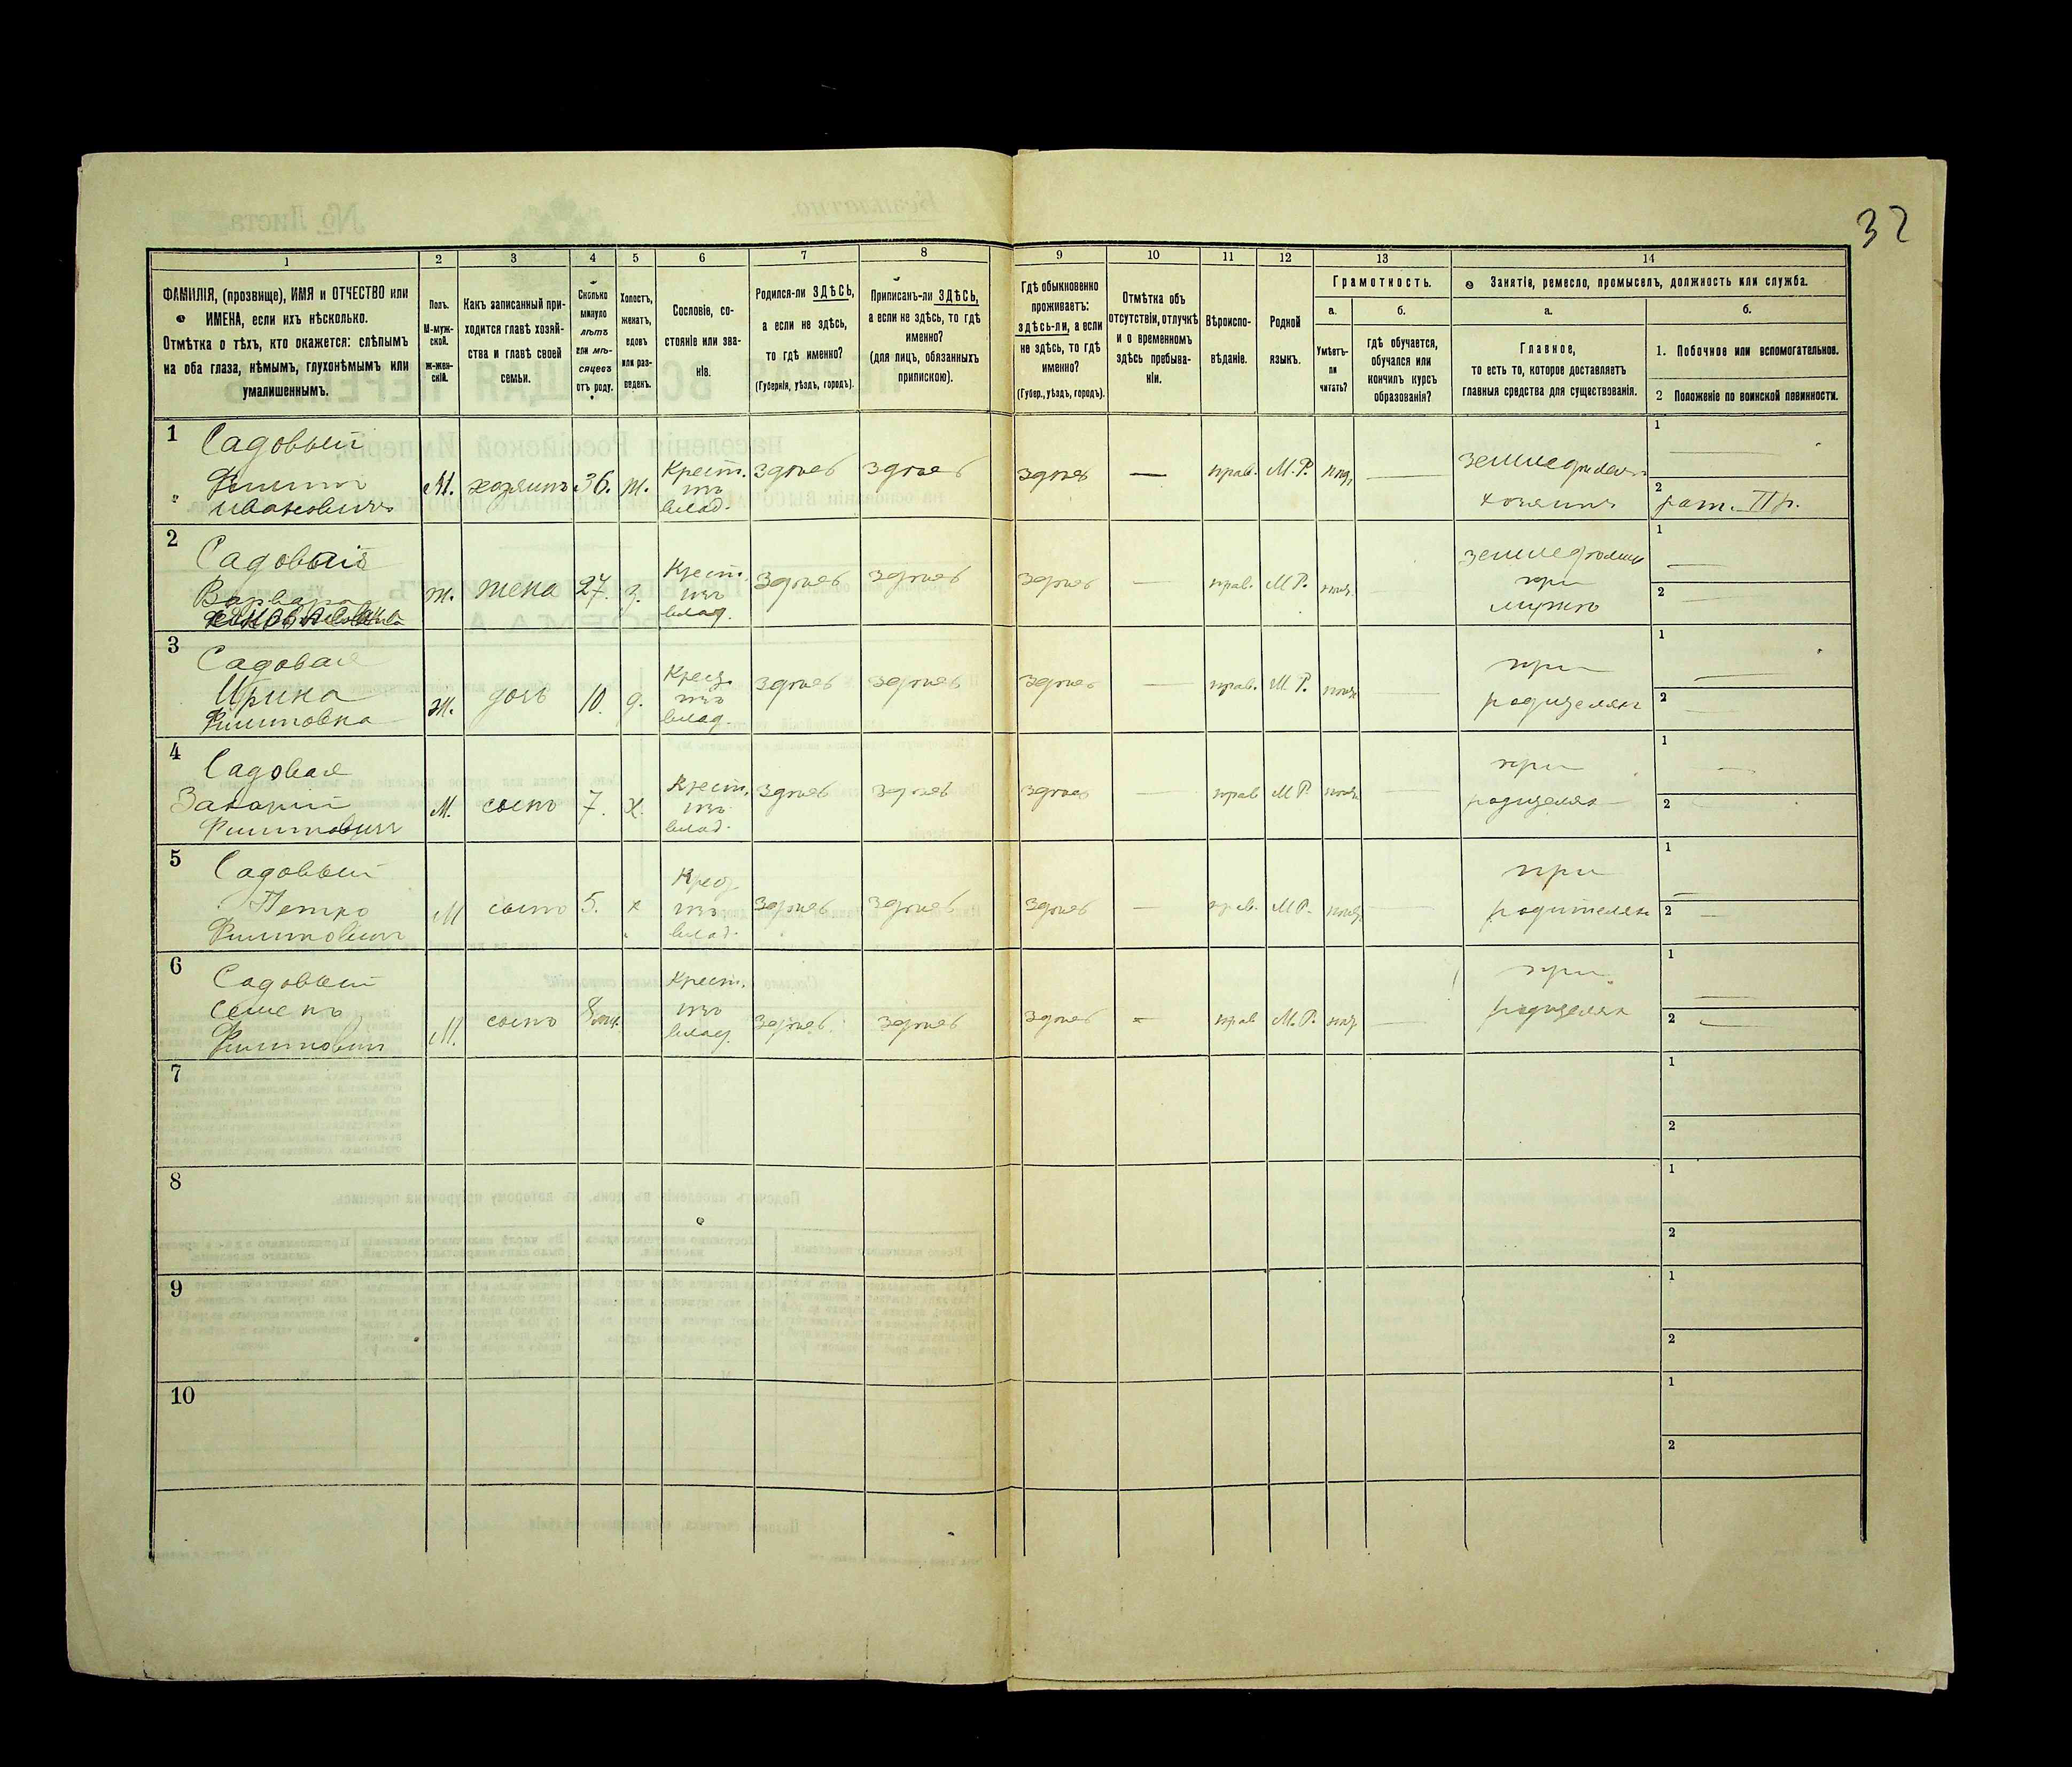 32
1 2 3 4 5 6 7 8 9 10 11 12 13 14
ФАМИЛІЯ, (прозвище), ИМЯ и ОТЧЕСТВО или ИМЕНА, если ихъ нѣсколько.
Отмѣтка о тѣхъ, кто окажется: слѣпымъ на оба глаза, нѣмымъ, глухонѣмымъ или умалишеннымъ.
Полъ.
М-мужской.
ж-женскій.
Какъ записанный приходится главѣ хозяйства и главѣ своей семьи.
Сколько минуло лѣтъ или мѣсяцевъ отъ роду.
Холостъ, женатъ, вдовъ или разведенъ.
Сословіе, состояніе или званіе.
Родился-ли ЗДѢСЬ, а если не здѣсь, то гдѣ именно?
(Губернія, уѣздъ, городъ).
Приписанъ-ли ЗДѢСЬ, а если не здѣсь, то гдѣ именно?
(для лицъ, обязанныхъ припискою).
Гдѣ обыкновенно проживаетъ: здѣсь-ли, а если не здѣсь, то гдѣ именно?
(Губер., уѣздъ, городъ).
Отмѣтка объ отсутствіи, отлучкѣ и о временномъ здѣсь пребываніи.
Вѣроисповѣданіе.
Родной языкъ.
Грамотность.
а.
Умѣетъ-ли читать?
б.
гдѣ обучается, обучался или кончилъ курсъ образованія?
Занятіе, ремесло, промыселъ, должность или служба.
а.
Главное,
то есть то, которое доставляетъ главныя средства для существованія.
б.
1. Побочное или вспомогательное.
2 Положеніе по воинской повинности.
1 Садовый
Филипъ
Ивановичъ
М. хозяинъ 36. ж. Крест. изъ влад. здѣсь здѣсь здѣсь — прав. М.Р. —
земледѣлецъ
хозяинъ
1 —
2 рат. II р.
2 Садовая
Варвара
ж. жена 27. Крест. изъ влад. здѣсь здѣсь здѣсь — прав. М.Р.
при
мужѣ
1 —
2 —
3 Садовая
Ирина
Филиповна
ж. дочь 10. д. Крест. изъ влад. здѣсь здѣсь здѣсь — прав. М.Р. —
при
родителяхъ
1 —
2 —
4 Садовая
Захарій
Филиповичъ
М. сынъ 7. х. Крест. изъ влад. здѣсь здѣсь здѣсь — прав М.Р. —
при
родителях
1 —
2
5 Садовый
Петро
Филиповичъ
М сынъ 5. х Крест. изъ влад. здѣсь здѣсь здѣсь — прав. М.Р. —
при
родителях
1 —
2 —
6 Садовый
Семенъ
Филиповичъ
М. сынъ Крест. изъ влад. здѣсь здѣсь здѣсь — прав М.Р. —
при
родителях
1 —
2 —
7
1
2
8
1
2
9
1
2
10
1
2